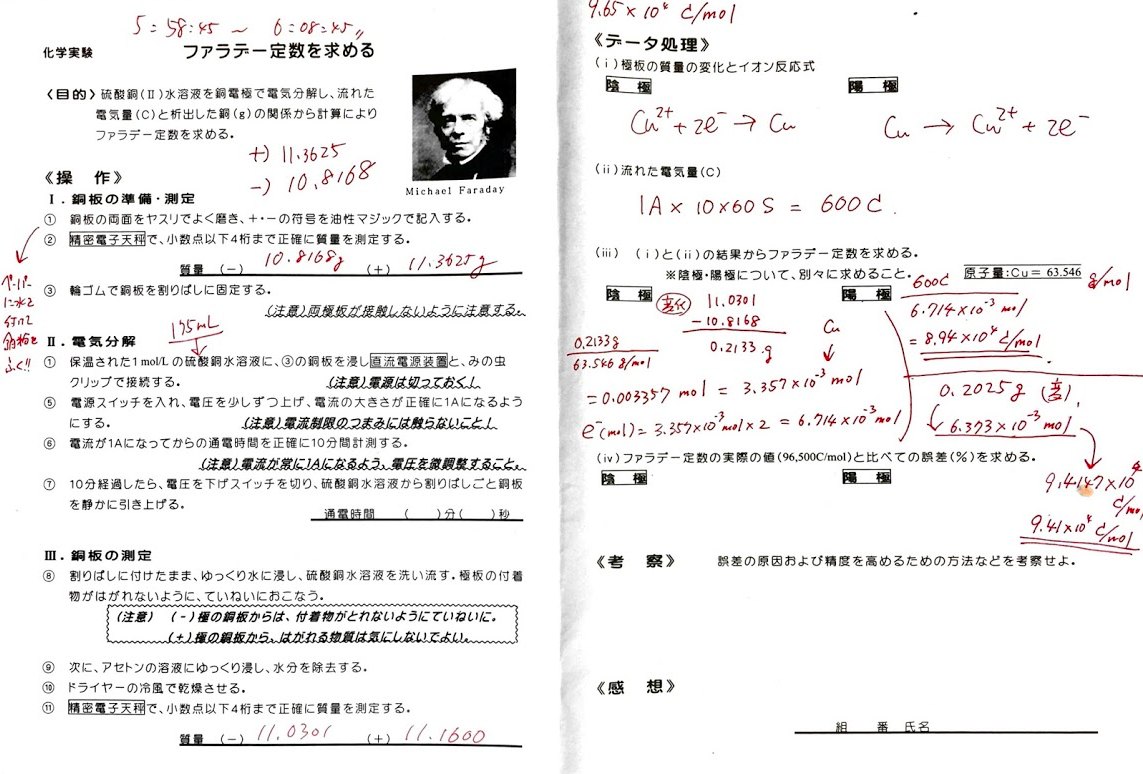 5:58:45 ~ 6:08:45
化学実験 ファラデー定数を求める
《目的》硫酸銅(Ⅱ)水溶液を銅電極で電気分解し、流れた
電気量(C)と析出した銅(g)の関係から計算により
ファラデー定数を求める。
+) 11.3625
-) 10.8168
Michael Faraday
《操 作》
Ⅰ.銅板の準備・測定
① 銅板の両面をヤスリでよく磨き、+・-の符号を油性マジックで記入する。
② 精密電子天秤で、小数点以下4桁まで正確に質量を測定する。
質量 (-) 10.8168g (+) 11.3625g
ペーパー
に水を
付けて
銅板を
ふく!!
③ 輪ゴムで銅板を割りばしに固定する。
(注意)両極板が接触しないように注意する。
175mL
Ⅱ.電気分解
① 保温された1mol/Lの硫酸銅水溶液に、③の銅板を浸し直流電源装置と、みの虫
クリップで接続する。 (注意)電源は切っておく!
⑤ 電源スイッチを入れ、電圧を少しずつ上げ、電流の大きさが正確に1Aになるよう
にする。 (注意)電流制限のつまみには触らないこと!
⑥ 電流が1Aになってからの通電時間を正確に10分間計測する。
(注意)電流が常に1Aになるよう、電圧を微調整すること。
⑦ 10分経過したら、電圧を下げスイッチを切り、硫酸銅水溶液から割りばしごと銅板
を静かに引き上げる。
通電時間 ( )分( )秒
Ⅲ.銅板の測定
⑧ 割りばしに付けたまま、ゆっくり水に浸し、硫酸銅水溶液を洗い流す。極板の付着
物がはがれないように、ていねいにおこなう。
(注意) (-)極の銅板からは、付着物がとれないようにていねいに。
(+)極の銅板から、はがれる物質は気にしないでよい。
⑨ 次に、アセトンの溶液にゆっくり浸し、水分を除去する。
⑩ ドライヤーの冷風で乾燥させる。
⑪ 精密電子天秤で、小数点以下4桁まで正確に質量を測定する。
質量 (-) 11.0301 (+) 11.1600
9.65×10⁴ C/mol
《データ処理》
(ⅰ)極板の質量の変化とイオン反応式
陰 極 陽 極
Cu²⁺+2e⁻→Cu Cu → Cu²⁺+2e⁻
(ⅱ)流れた電気量(C)
1A×10×60S = 600C.
(ⅲ) (ⅰ)と(ⅱ)の結果からファラデー定数を求める。
※陰極・陽極について、別々に求めること。 原子量:Cu= 63.546 g/mol
陰 極 変化 11.0301
-10.8168
0.2133g
0.2133g
63.546g/mol
=0.003357 mol = 3.357×10⁻³ mol
e⁻(mol)= 3.357×10⁻³mol×2 = 6.714×10⁻³ mol
陽 極
Cu
↓
600C
6.714×10⁻³ mol
= 8.94×10⁴ C/mol
0.2025g (変),
6.373×10⁻³ mol
9.4147×10⁴
C/mol
9.41×10⁴ C/mol
(ⅳ)ファラデー定数の実際の値(96,500C/mol)と比べての誤差(%)を求める。
陰 極 陽 極
《考 察》 誤差の原因および精度を高めるための方法などを考察せよ。
《感 想》
組 番 氏名